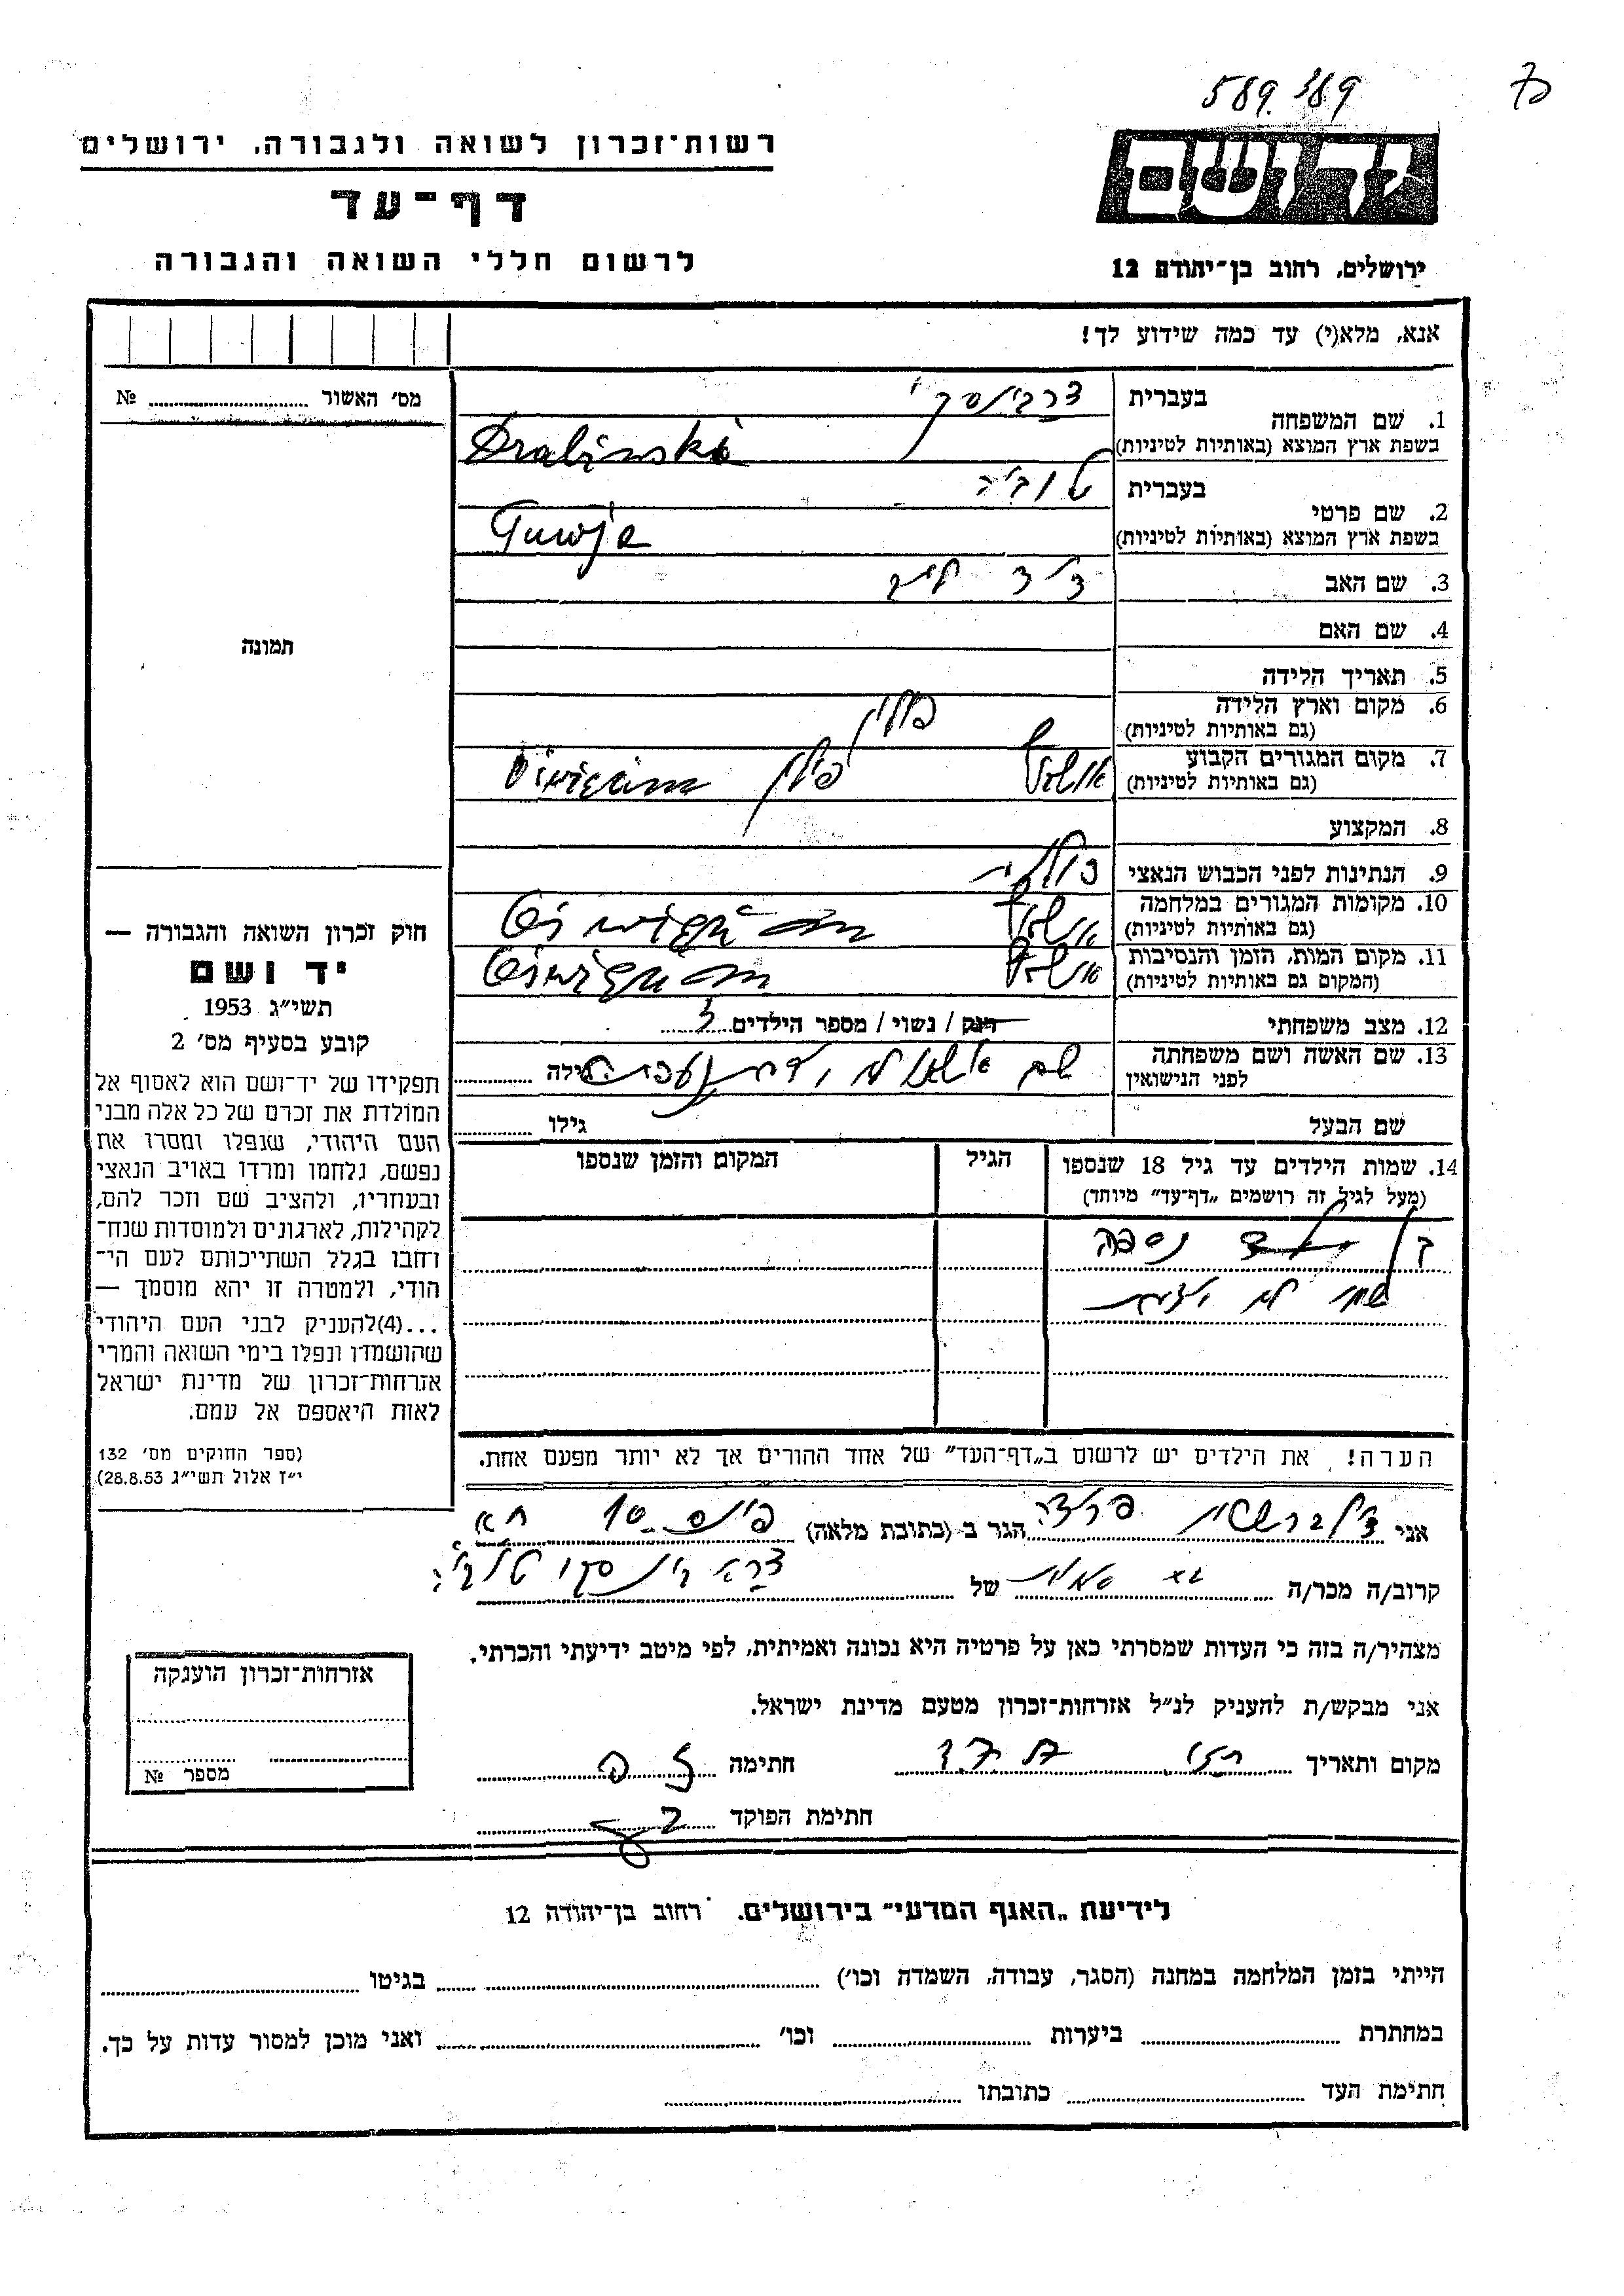 589.389
רשות־זכרון לשואה ולגבורה, ירושלים
דף־עד
לרשום חללי השואה והגבורה
ידושם
ירושלים, רחוב בן־יהודה 12
אנא, מלא(י) עד כמה שידוע לך!
מס' האשור № 
1. שם המשפחה בעברית דרבינסקי
בשפת ארץ המוצא (באותיות לטיניות) Drabinski
2. שם פרטי בעברית טוביה
בשפת ארץ המוצא (באותיות לטיניות) Tuwja
3. שם האב דוד
4. שם האם
5. תאריך הלידה
6. מקום וארץ הלידה פולין
(גם באותיות לטיניות)
7. מקום המגורים הקבוע פולין Oświęcim
(גם באותיות לטיניות)
8. המקצוע
9. הנתינות לפני הכבוש הנאצי פולנית
10. מקומות המגורים במלחמה Oświęcim
(גם באותיות לטיניות)
11. מקום המות, הזמן והנסיבות Oświęcim
(המקום גם באותיות לטיניות)
12. מצב משפחתי רוק / נשוי / מספר הילדים
13. שם האשה ושם משפחתה לפני הנישואין שם גילה
שם הבעל גילו
14. שמות הילדים עד גיל 18 שנספו הגיל המקום והזמן שנספו
(מעל לגיל זה רושמים „דף־עד" מיוחד)
נספה
שמו לא
הערה! את הילדים יש לרשום ב„דף־העד" של אחד ההורים אך לא יותר מפעם אחת.
תמונה
חוק זכרון השואה והגבורה —
יד ושם
תשי"ג 1953
קובע בסעיף מס' 2
תפקידו של יד־ושם הוא לאסוף אל
המולדת את זכרם של כל אלה מבני
העם היהודי, שנפלו ומסרו את
נפשם, נלחמו ומרדו באויב הנאצי
ובעוזריו, ולהציב שם וזכר להם,
לקהילות, לארגונים ולמוסדות שנח־
רחבו בגלל השתייכותם לעם הי־
הודי, ולמטרה זו יהא מוסמך —
...(4)להעניק לבני העם היהודי
שהושמדו ונפלו בימי השואה והמרי
אזרחות־זכרון של מדינת ישראל
לאות היאספם אל עמם.
(ספר החוקים מס' 132
י"ז אלול תשי"ג 28.8.53)
אני הגר ב־(כתובת מלאה) פינס 10
קרוב/ה מכר/ה של דראבינסקי טוביה
מצהיר/ה בזה כי העדות שמסרתי כאן על פרטיה היא נכונה ואמיתית, לפי מיטב ידיעתי והכרתי.
אני מבקש/ת להעניק לנ"ל אזרחות־זכרון מטעם מדינת ישראל.
מקום ותאריך חתימה
חתימת הפוקד
אזרחות־זכרון הוענקה
מספר №
לידיעת „האגף המדעי" בירושלים. רחוב בן־יהודה 12
הייתי בזמן המלחמה במחנה (הסגר, עבודה, השמדה וכו') בגיטו
במחתרת ביערות וכו' ואני מוכן למסור עדות על כך.
חתימת העד כתובתו